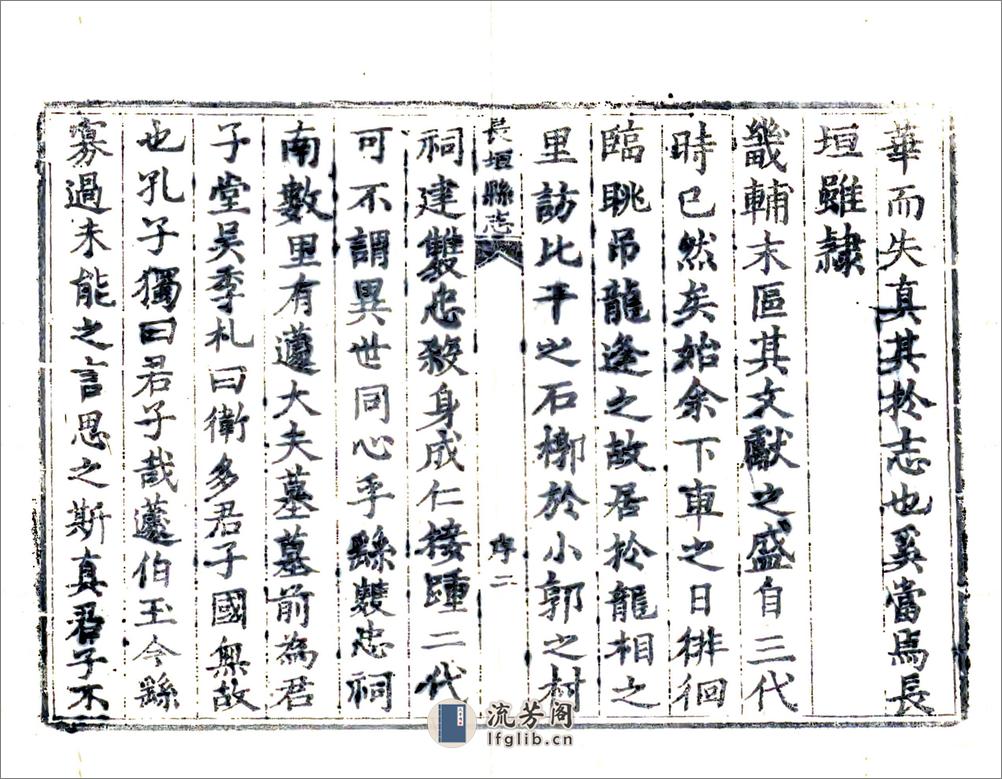 華而失真其扵志也奚當焉長
垣雖隷
畿輔末區其文獻之盛自三代
時已然矣始余下車之日徘徊
臨眺吊龍逢之故居扵龍相之
里訪比干之石槨於小郭之村
長垣縣志 序 二
祠建雙忠殺身成仁接踵二代
可不謂異世同心乎縣雙忠祠
南數里有蘧大夫墓墓前為君
子堂吳季札曰衛多君子國無故
也孔子獨曰君子哉蘧伯玉今縣
寡過未能之言思之斯真君子不
流芳阁
lfglib.cn